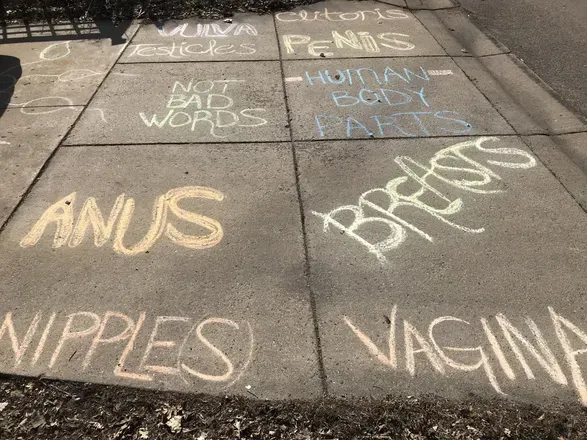 VULVA
Testicles
Clitoris
PENIS
NOT
BAD
WORDS
HUMAN
BODY
PARTS
ANUS
BREASTS
NIPPLE(S)
VAGINA